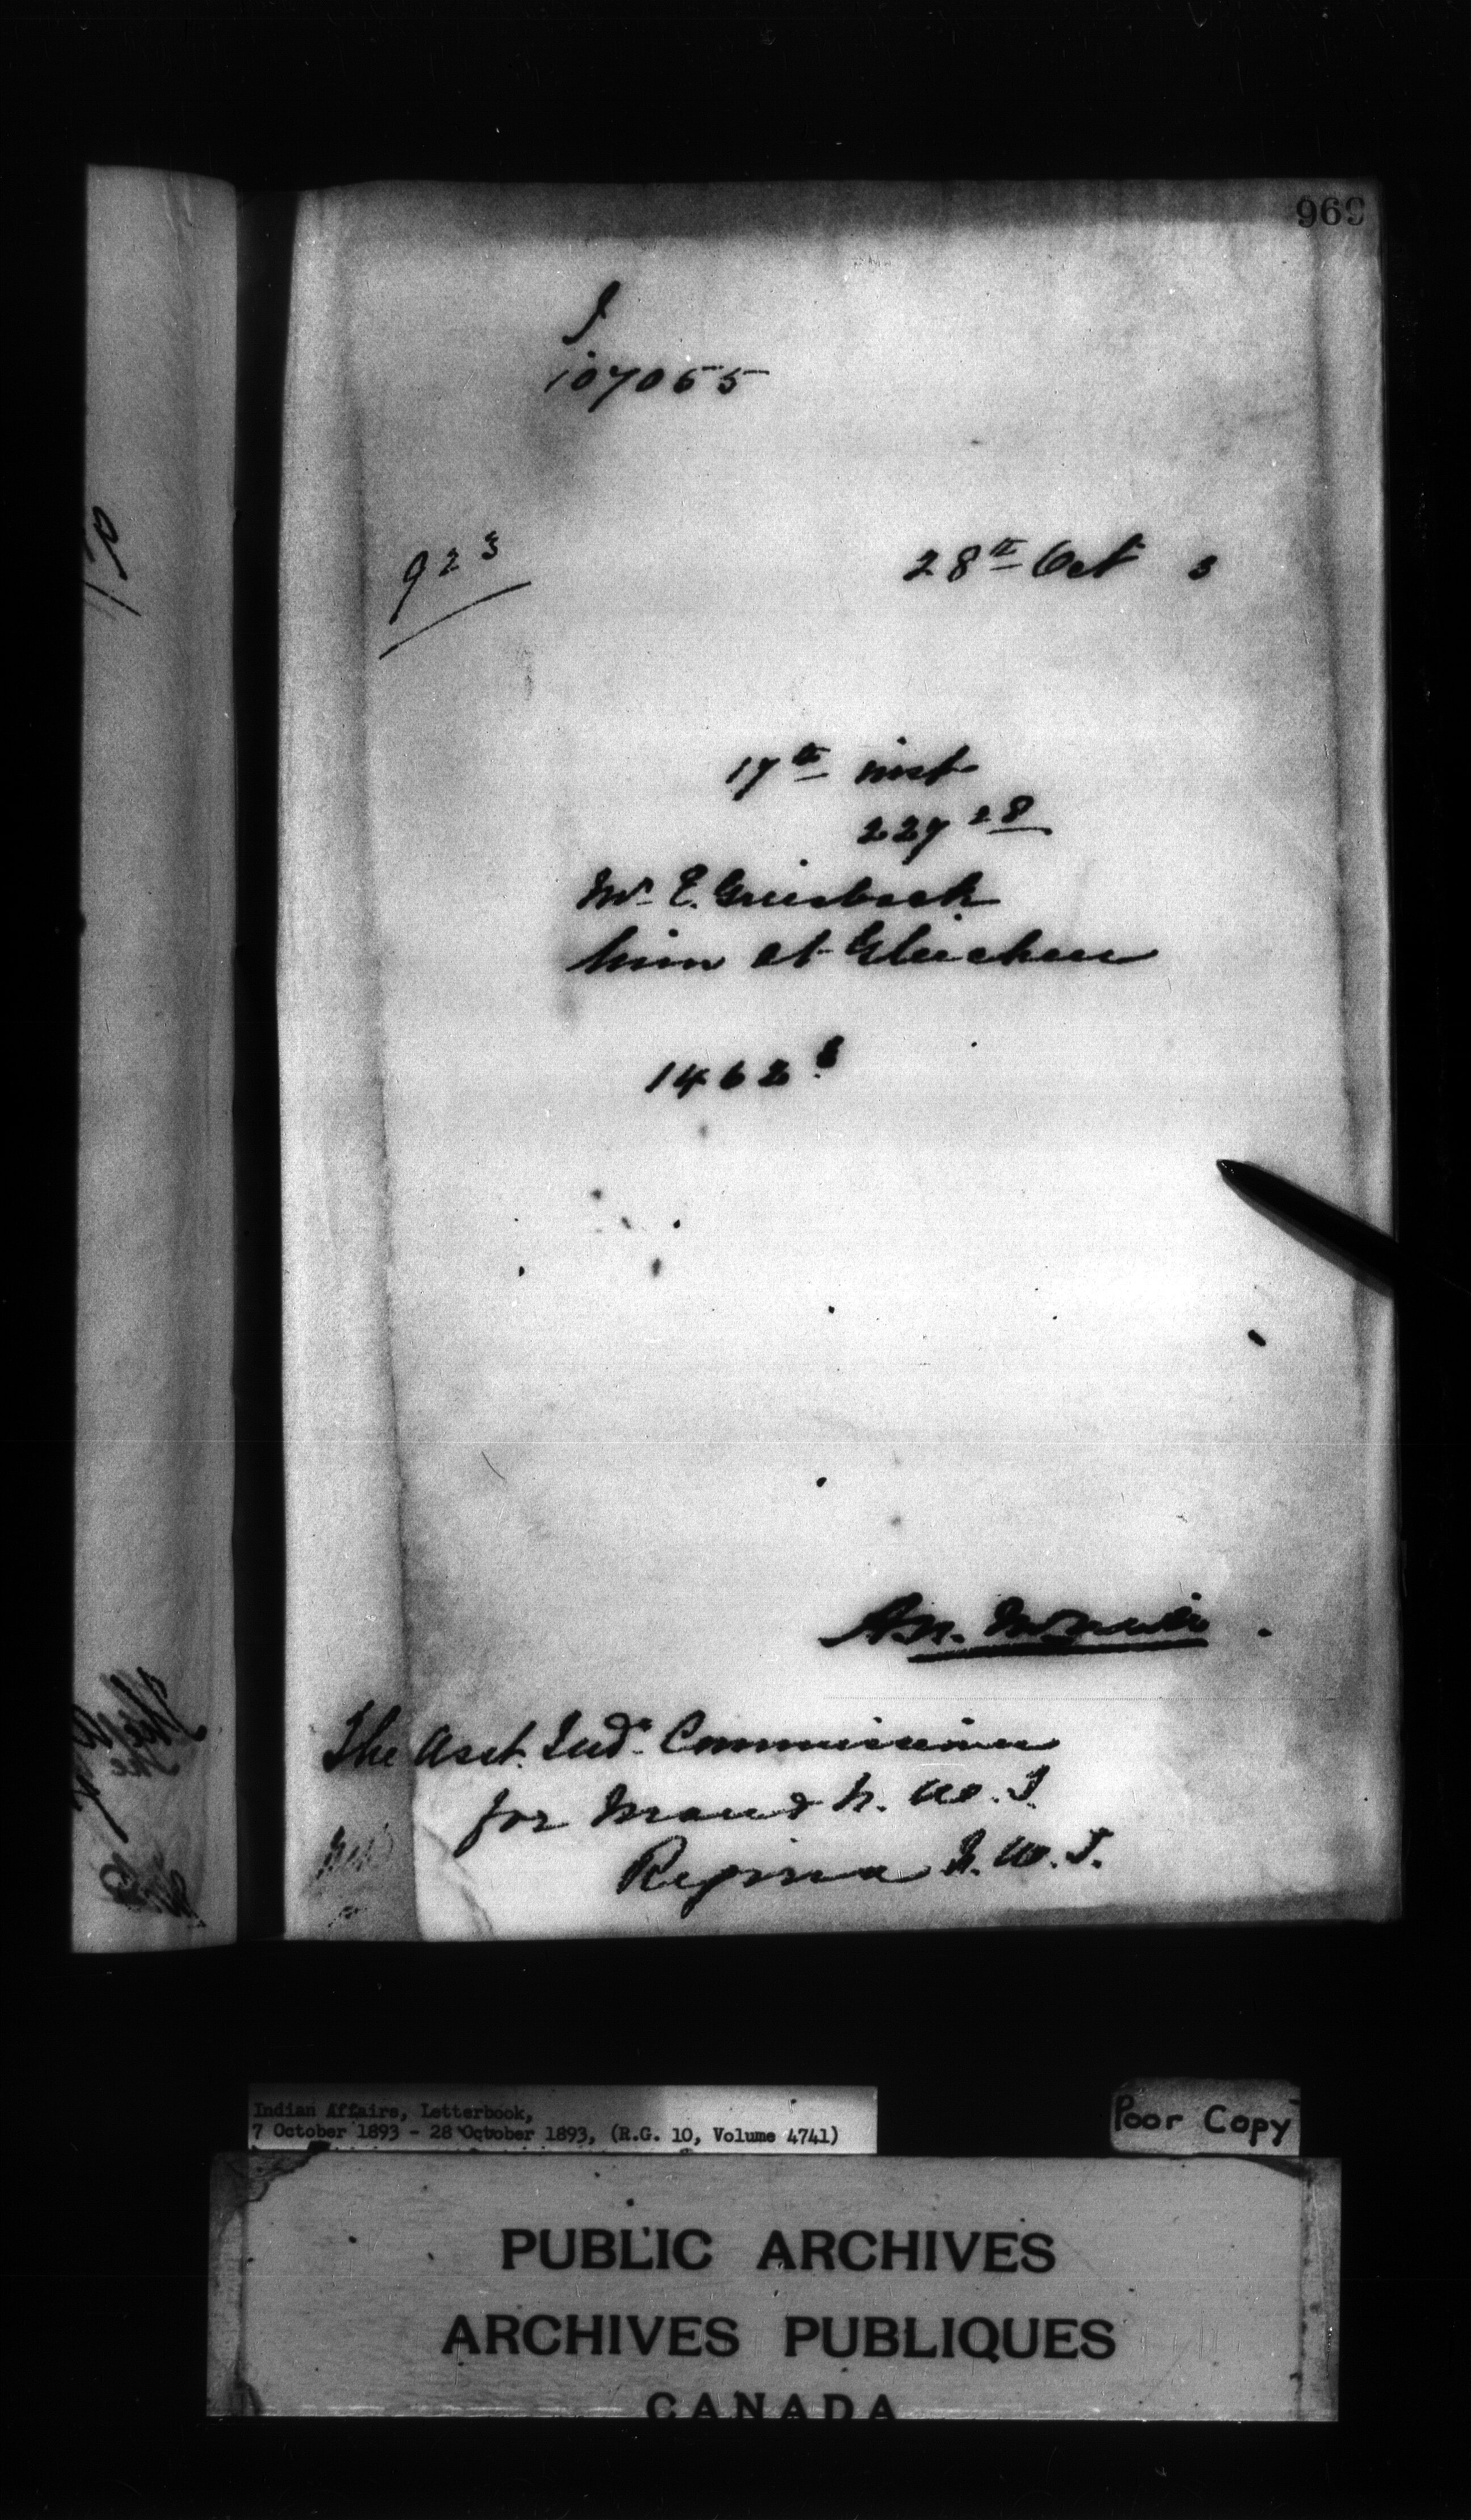 969
J
107055
923
28th Oct 3
17th inst
227 28
Mr E. Griesbach
him at Gleichen
1462
The Asst. Ind. Commissioner
for Man & N. W. T.
Regina N. W. T.
Indian Affairs, Letterbook,
7 October 1893 - 28 October 1893, (R.G. 10, Volume 4741)
Poor Copy
PUBLIC ARCHIVES
ARCHIVES PUBLIQUES
CANADA